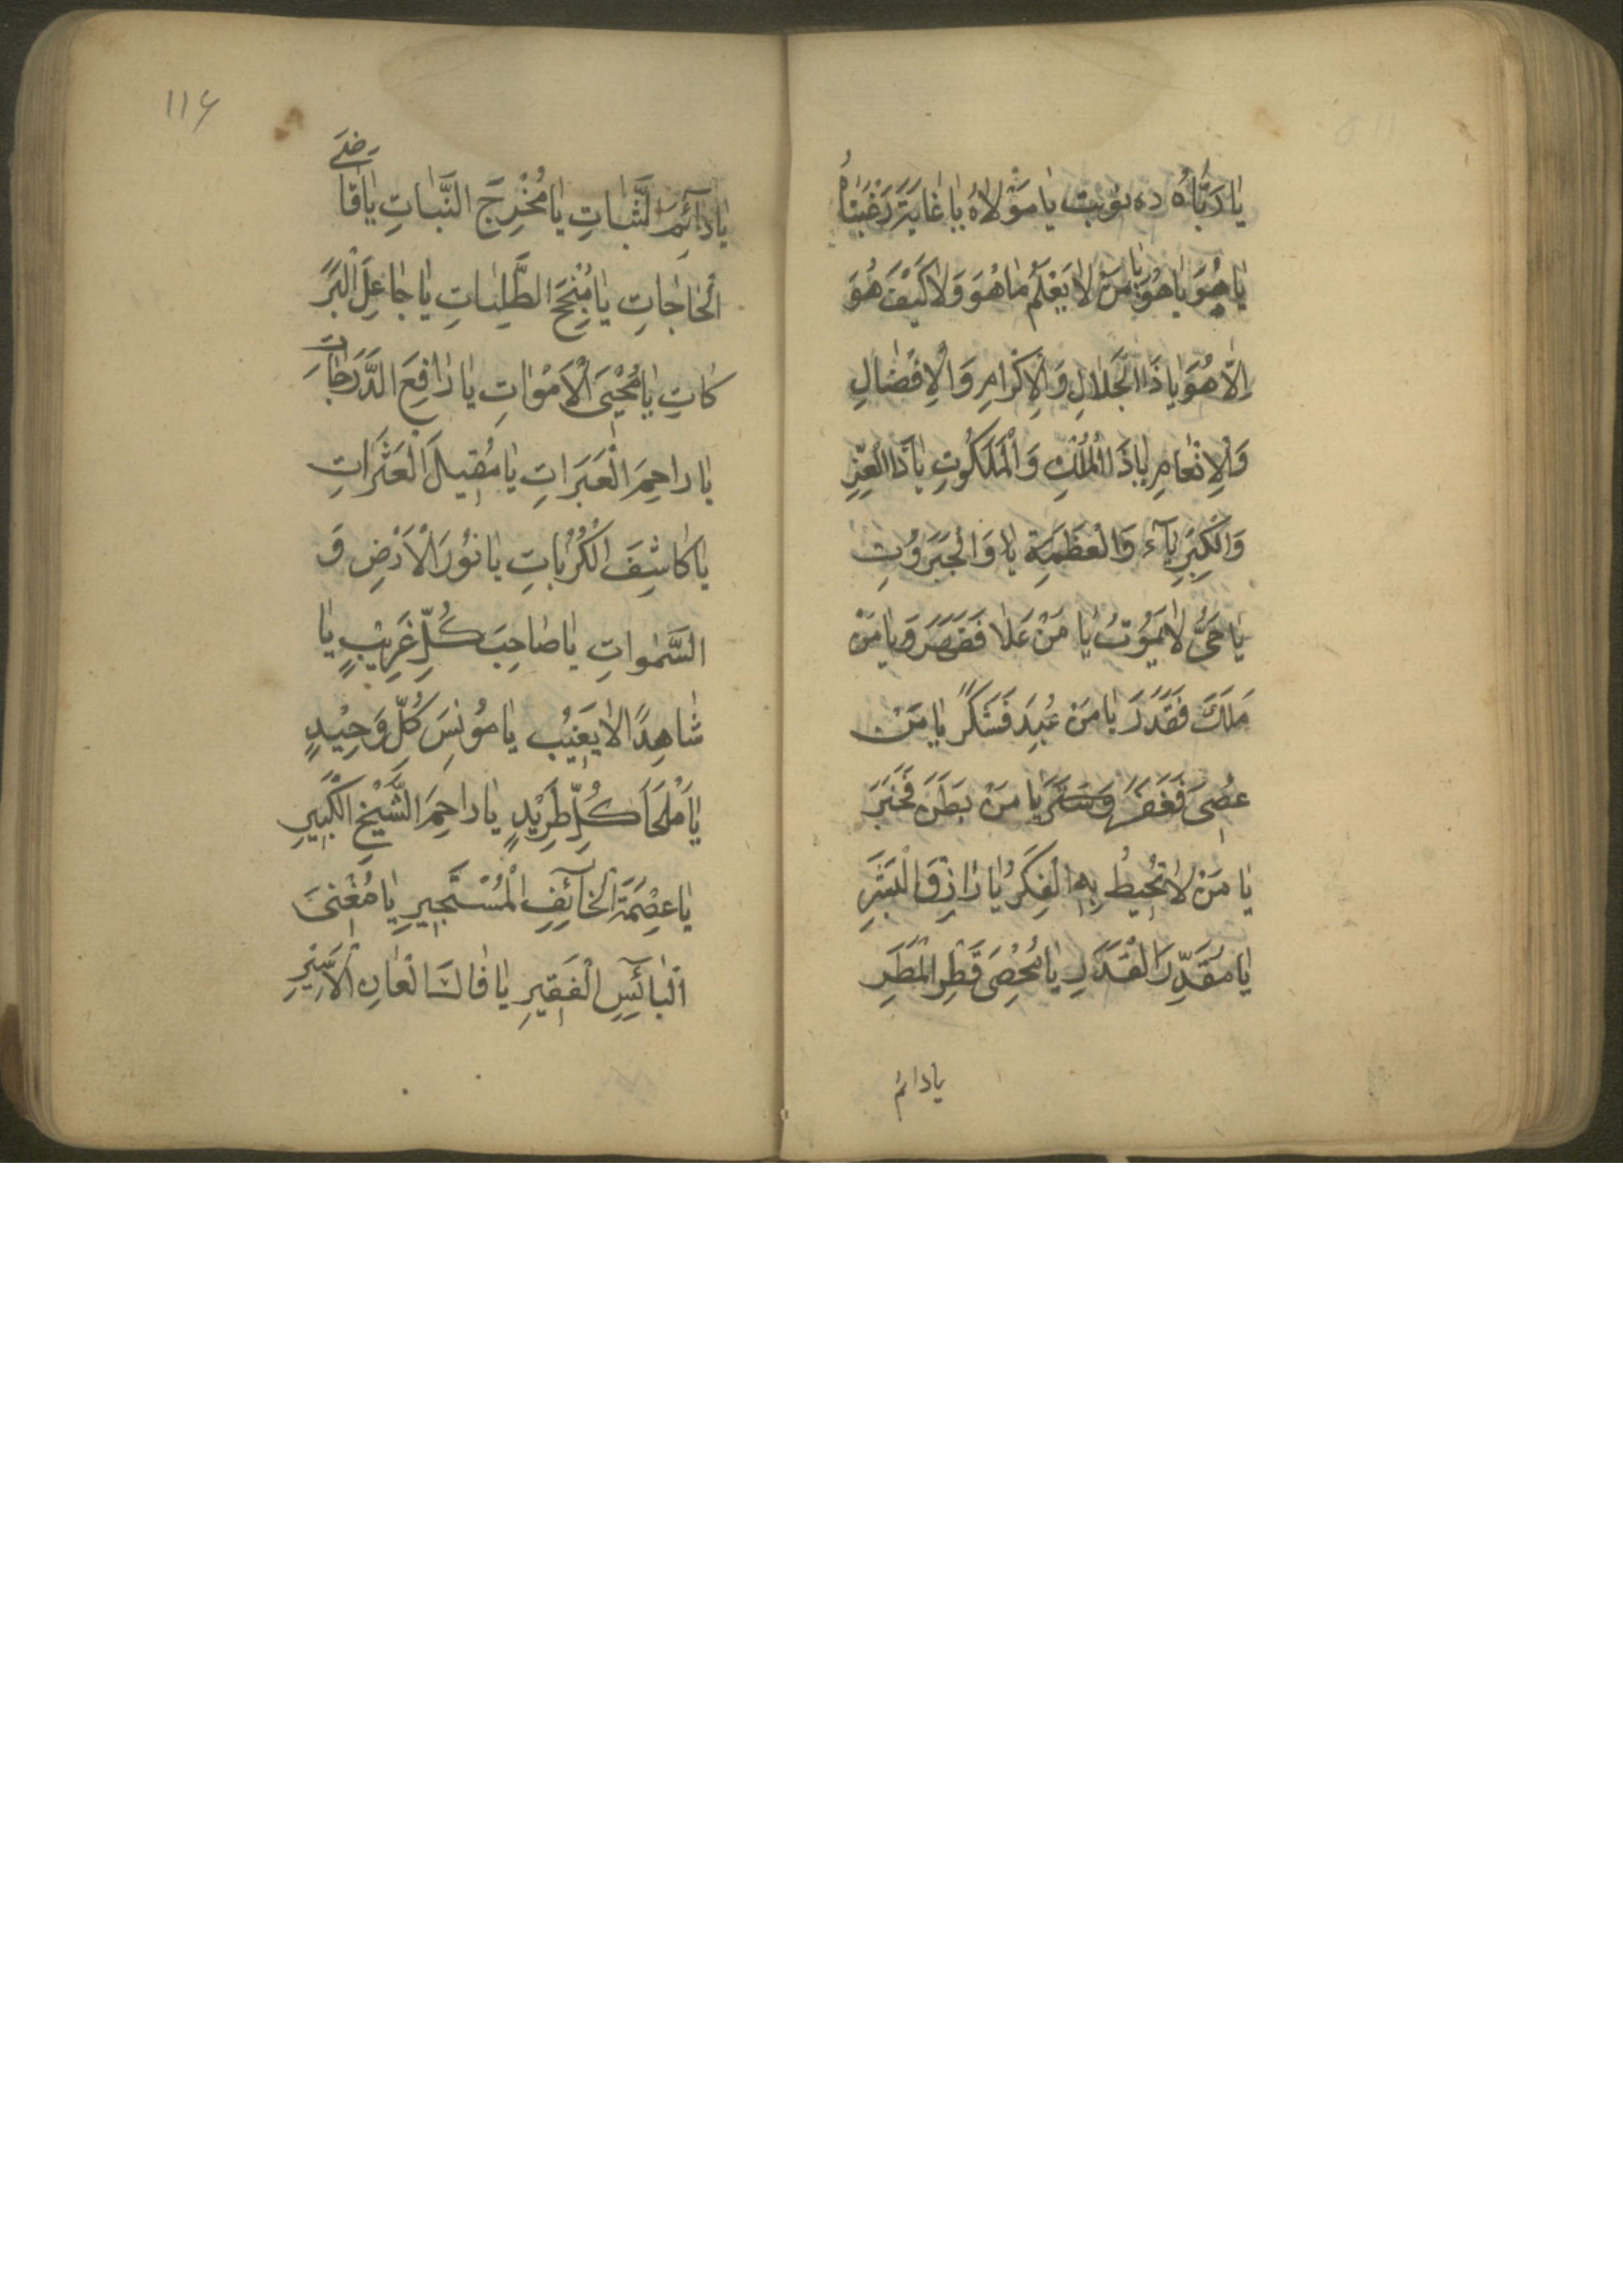 يَا رَبَّاهُ ده نوبت يَا مَوْلَاهُ يَا غَايَةَ رَغْبَتَاهُ
يَا هُوَ يَا هُوَ يَا مَنْ لَا يَعْلَمُ مَا هُوَ وَلَا كَيْفَ هُوَ
اِلَّا هُوَ يَا ذَا الْجَلَالِ وَالْاِكْرَامِ وَالْاِفْضَالِ
وَالْاِنْعَامِ يَا ذَا الْمُلْكِ وَالْمَلَكُوتِ يَا ذَا الْعِزِّ
وَالْكِبْرِيَآءِ وَالْعَظَمَةِ يا وَالْجَبَرُوْتِ
يَا حَيُّ لَا يَمُوْتُ يَا مَنْ عَلَا فَقَهَرَ وَيَا مَنْ
مَلَكَ فَقَدَرَ يَا مَنْ عُبِدَ فَشَكَرَ يَا مَنْ
عُصِيَ فَغَفَرَ وَسَتَرَ يَا مَنْ بَطَنَ فَخَبَرَ
يَا مَنْ لَا تُحِيْطُ بِهِ الْفِكَرُ يَا رَازِقَ الْبَشَرِ
يَا مُقَدِّرَ الْقَدَرِ يَا مُحْصِيَ قَطْرِ الْمَطَرِ
يا دائم
116
يَا دَآئِمَ الثَّبَاتِ يَا مُخْرِجَ النَّبَاتِ يَا قَاضِيَ
الْحَاجَاتِ يَا مُنْجِحَ الطَّلِبَاتِ يَا جَاعِلَ الْبَرَ
كَاتِ يَا مُحْيِيَ الْاَمْوَاتِ يَا رَافِعَ الدَّرَجَاتِ
يَا رَاحِمَ الْعَبَرَاتِ يَا مُقِيلَ الْعَثَرَاتِ
يَا كَاشِفَ الْكُرُبَاتِ يَا نُوْرَ الْاَرْضِ وَ
السَّمٰوَاتِ يَا صَاحِبَ كُلِّ غَرِيْبٍ يَا
شَاهِدًا لَا يَغِيْبُ يَا مُوْنِسَ كُلِّ وَحِيْدٍ
يَا مَلْجَأَ كُلِّ طَرِيْدٍ يَا رَاحِمَ الشَّيْخِ الْكَبِيرِ
يَا عِصْمَةَ الْخَآئِفِ الْمُسْتَجِيرِ يَا مُغْنِيَ
الْبَآئِسِ الْفَقِيرِ يَا فَاكَّ الْعَانِ الْاَسِيْرِ